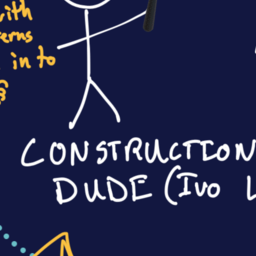 with
in to
CONSTRUCTION
DUDE (Ivo L